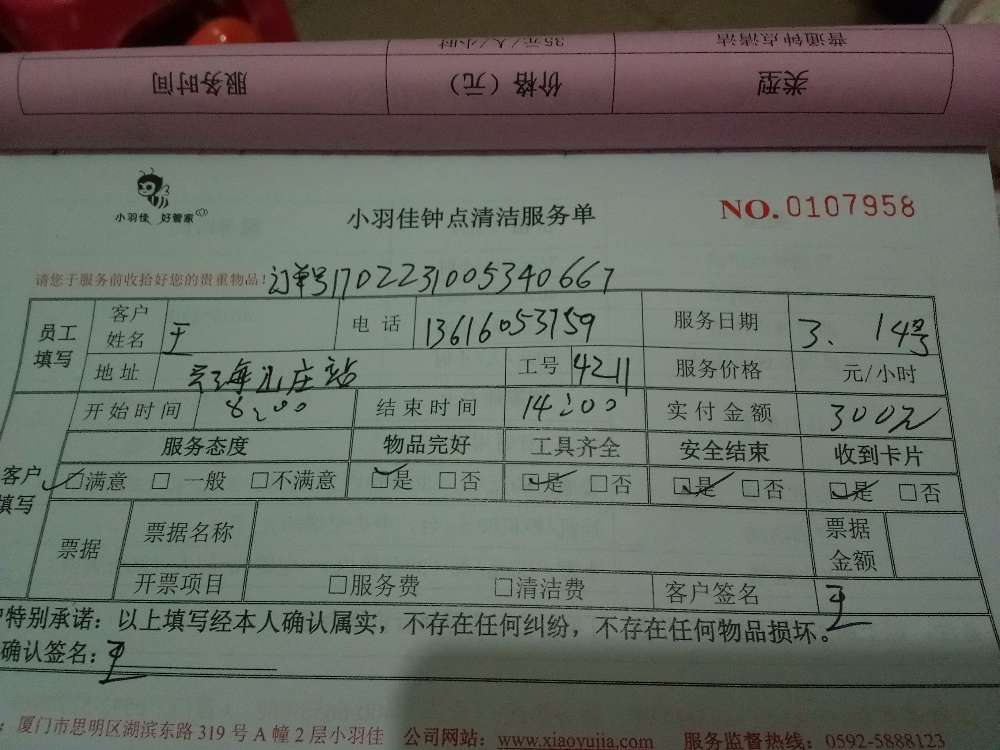 普通钟点清洁 35元/人/小时
类型 价格（元） 服务时间
小羽佳 好管家
小羽佳钟点清洁服务单
NO.0107958
请您于服务前收拾好您的贵重物品！订单号17022310053406​67
员工填写 客户姓名 王 电话 13616053759 服务日期 3. 14号
地址 工号 4211 服务价格 元/小时
客户填写 开始时间 8:00 结束时间 14:00 实付金额 300元
服务态度 物品完好 工具齐全 安全结束 收到卡片
☑满意 □ 一般 □不满意 ☑是 □否 ☑是 □否 ☑是 □否 ☑是 □否
票据 票据名称 票据金额
开票项目 □服务费 □清洁费 客户签名 王
特别承诺：以上填写经本人确认属实，不存在任何纠纷，不存在任何物品损坏。
确认签名：王
：厦门市思明区湖滨东路 319 号 A 幢 2 层小羽佳 公司网站：www.xiaoyujia.com 服务监督热线：0592-5888123